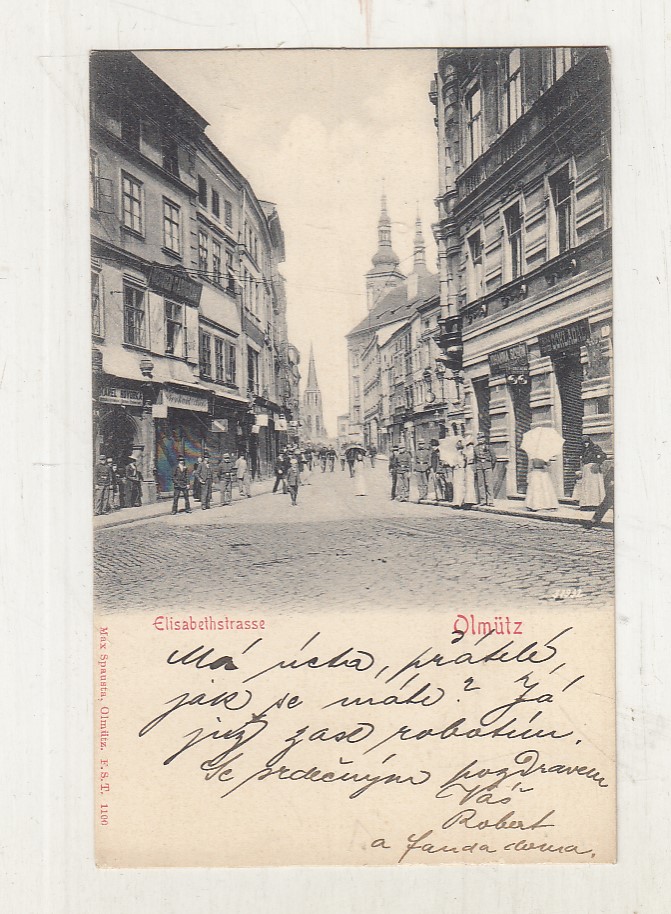 KAREL
Elisabethstrasse
Olmütz
Má úcta, přátelé,
jak se máte? Já
již zase robotím.
Se srdečným pozdravem
Váš
Robert
a Fanda doma.
Max Spausta, Olmütz. F. S. T. 1100